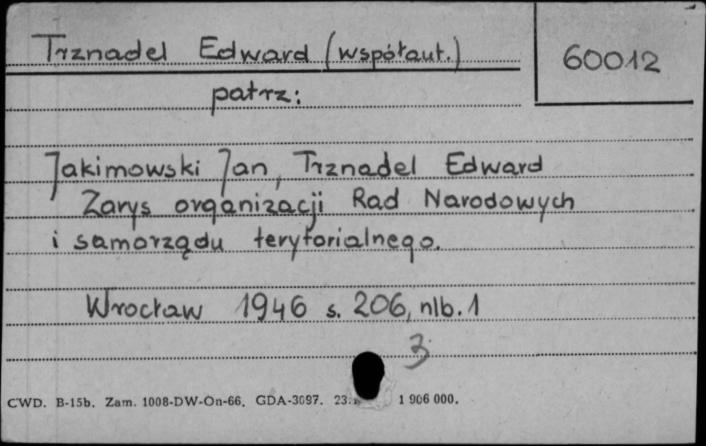 Trznadel Edward (współaut.)
60012
patrz:
Jakimowski Jan, Trznadel Edward
Zarys organizacji Rad Narodowych
i samorządu terytorialnego.
Wrocław 1946 s. 206, nlb. 1
3
CWD. B-15b. Zam. 1008-DW-On-66. GDA-3097. 23. 1 906 000.